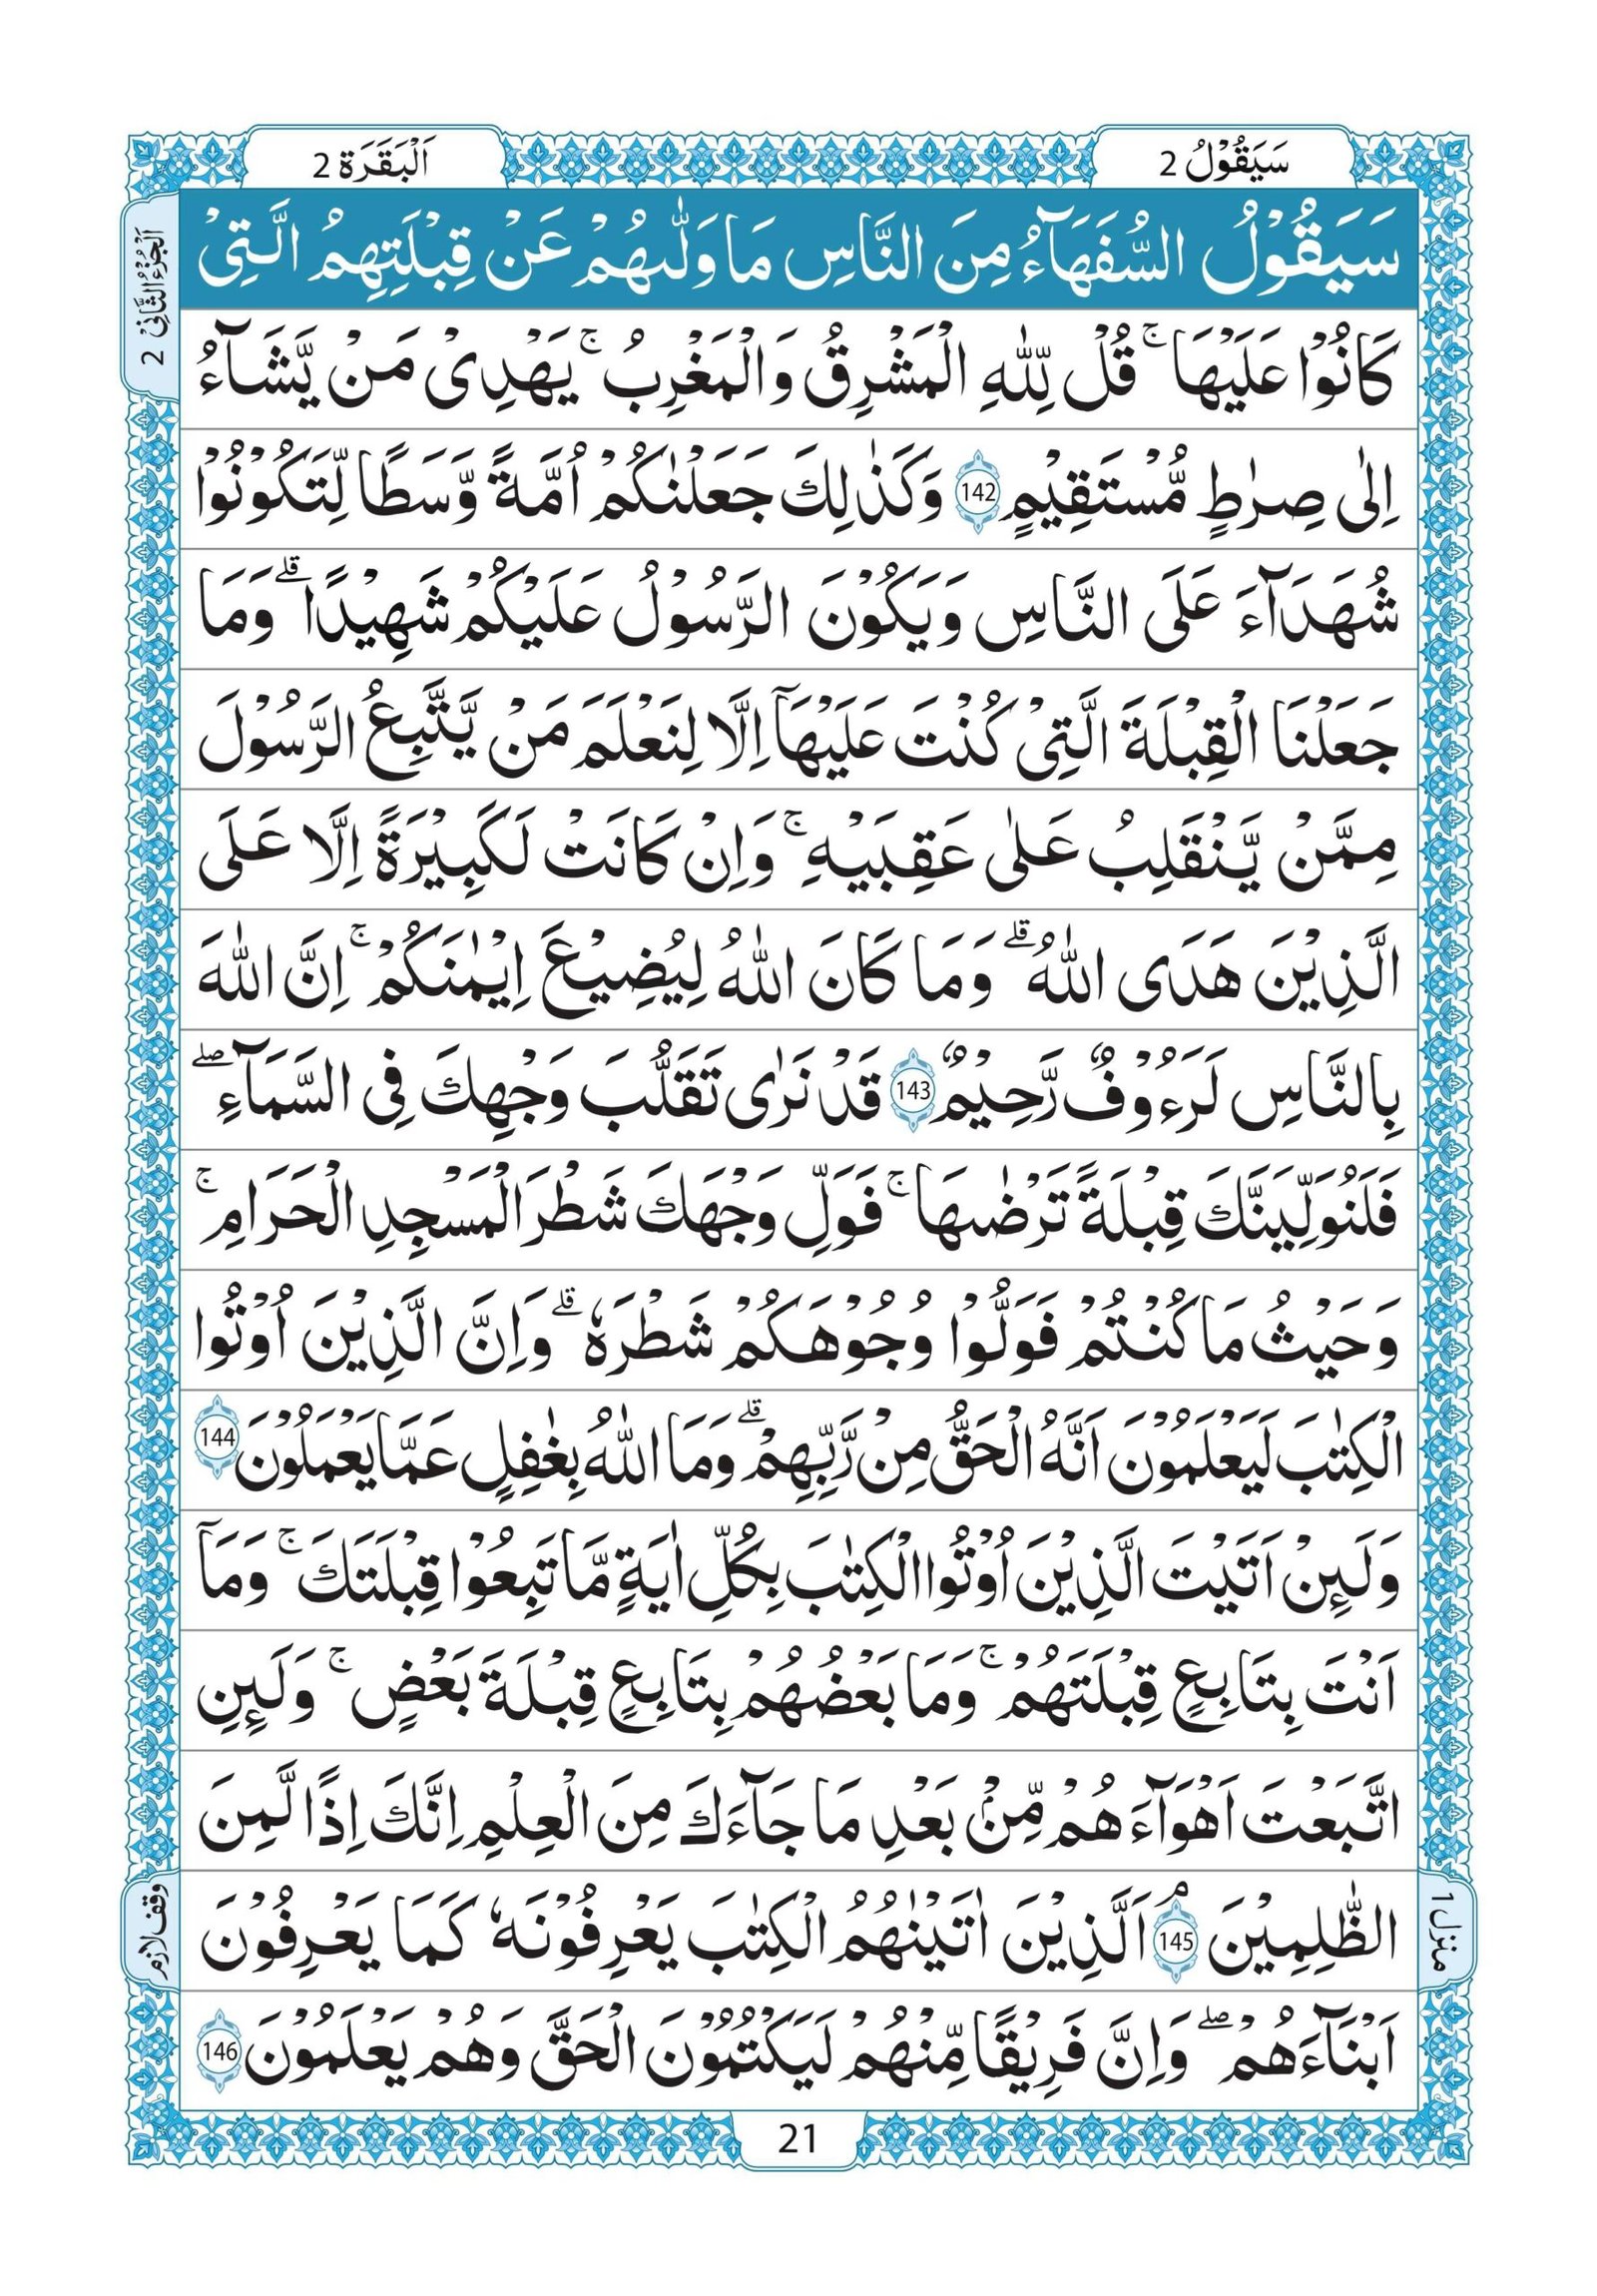 سَيَقُوْلُ 2
اَلْبَقَرَة 2
اَلْجُزْءُ الثَّانِیْ 2
سَيَقُوْلُ السُّفَهَآءُ مِنَ النَّاسِ مَا وَلّٰىهُمْ عَنْ قِبْلَتِهِمُ الَّتِیْ
كَانُوْا عَلَيْهَا ۚ قُلْ لِّلّٰهِ الْمَشْرِقُ وَالْمَغْرِبُ ۚ يَهْدِیْ مَنْ يَّشَآءُ
اِلٰی صِرٰطٍ مُّسْتَقِيْمٍ 142 وَكَذٰلِكَ جَعَلْنٰكُمْ اُمَّةً وَّسَطًا لِّتَكُوْنُوْا
شُهَدَآءَ عَلَی النَّاسِ وَيَكُوْنَ الرَّسُوْلُ عَلَيْكُمْ شَهِيْدًا ۗ وَمَا
جَعَلْنَا الْقِبْلَةَ الَّتِیْ كُنْتَ عَلَيْهَآ اِلَّا لِنَعْلَمَ مَنْ يَّتَّبِعُ الرَّسُوْلَ
مِمَّنْ يَّنْقَلِبُ عَلٰی عَقِبَيْهِ ۚ وَاِنْ كَانَتْ لَكَبِيْرَةً اِلَّا عَلَی
الَّذِيْنَ هَدَی اللّٰهُ ۗ وَمَا كَانَ اللّٰهُ لِيُضِيْعَ اِيْمٰنَكُمْ ۚ اِنَّ اللّٰهَ
بِالنَّاسِ لَرَءُوْفٌ رَّحِيْمٌ 143 قَدْ نَرٰی تَقَلُّبَ وَجْهِكَ فِی السَّمَآءِ ۖ
فَلَنُوَلِّيَنَّكَ قِبْلَةً تَرْضٰىهَا ۚ فَوَلِّ وَجْهَكَ شَطْرَ الْمَسْجِدِ الْحَرَامِ ۚ
وَحَيْثُ مَا كُنْتُمْ فَوَلُّوْا وُجُوْهَكُمْ شَطْرَهٗ ۗ وَاِنَّ الَّذِيْنَ اُوْتُوا
الْكِتٰبَ لَيَعْلَمُوْنَ اَنَّهُ الْحَقُّ مِنْ رَّبِّهِمْ ۗ وَمَا اللّٰهُ بِغٰفِلٍ عَمَّا يَعْمَلُوْنَ 144
وَلَىِٕنْ اَتَيْتَ الَّذِيْنَ اُوْتُوا الْكِتٰبَ بِكُلِّ اٰيَةٍ مَّا تَبِعُوْا قِبْلَتَكَ ۚ وَمَآ
اَنْتَ بِتَابِعٍ قِبْلَتَهُمْ ۚ وَمَا بَعْضُهُمْ بِتَابِعٍ قِبْلَةَ بَعْضٍ ۚ وَلَىِٕنِ
اتَّبَعْتَ اَهْوَآءَهُمْ مِّنْۢ بَعْدِ مَا جَآءَكَ مِنَ الْعِلْمِ اِنَّكَ اِذًا لَّمِنَ
الظّٰلِمِيْنَ ۘ 145 اَلَّذِيْنَ اٰتَيْنٰهُمُ الْكِتٰبَ يَعْرِفُوْنَهٗ كَمَا يَعْرِفُوْنَ
اَبْنَآءَهُمْ ۖ وَاِنَّ فَرِيْقًا مِّنْهُمْ لَيَكْتُمُوْنَ الْحَقَّ وَهُمْ يَعْلَمُوْنَ 146
منزل 1
وقف لازم
21